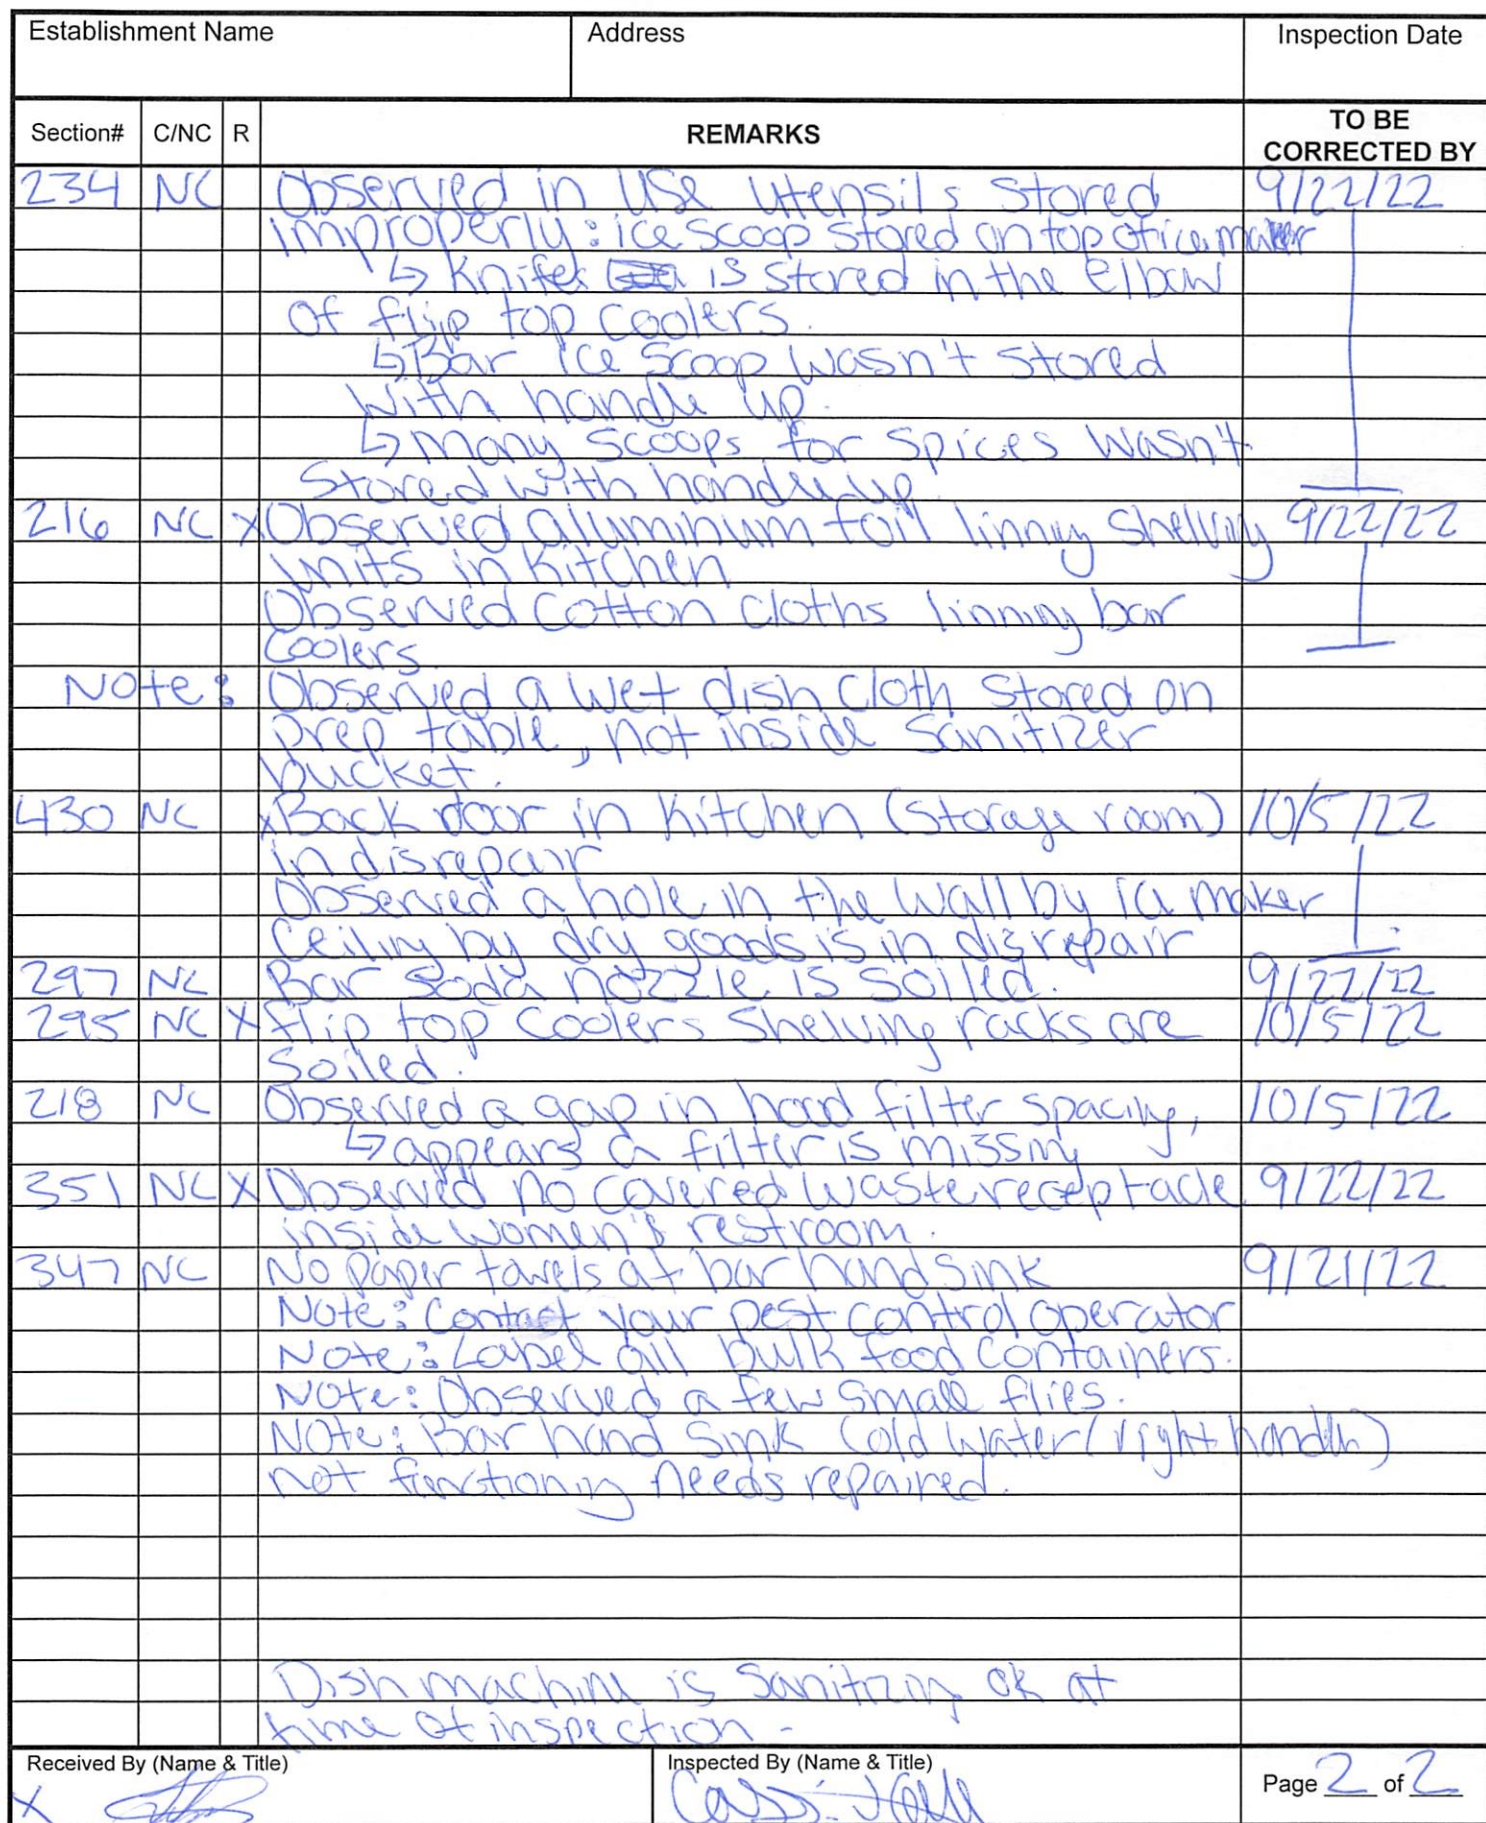 Establishment Name Address Inspection Date
Section# C/NC R REMARKS TO BE CORRECTED BY
234 NC Observed in use utensils stored 9/22/22
improperly: ice scoop stored on top of ice maker
↳ Knifes is stored in the elbow
of flip top coolers.
↳ Bar ice scoop wasn't stored
with handle up.
↳ many scoops for spices wasn't
stored with handle up.
216 NC X Observed aluminum foil linning shelving 9/22/22
units in kitchen
Observed cotton cloths linning bar
coolers.
Note: Observed a wet dish cloth stored on
prep table, not inside sanitizer
bucket.
430 NC x Back door in kitchen (storage room) 10/5/22
in disrepair
Observed a hole in the wall by ice maker
Ceiling by dry goods is in disrepair
297 NC Bar soda nozzle is soiled. 9/22/22
295 NC X flip top coolers shelving racks are 10/5/22
soiled.
218 NC Observed a gap in hood filter spacing, 10/5/22
↳ appears a filter is missing
351 NC X Observed no covered waste receptacle 9/22/22
inside women's restroom.
347 NC No paper towels at bar hand sink 9/21/22
Note: Contact your pest control operator
Note: Label all bulk food containers.
Note: Observed a few small flies.
Note: Bar hand sink cold water (right handle)
not functioning needs repaired.
Dish machine is sanitizing ok at
time of inspection -
Received By (Name & Title) Inspected By (Name & Title) Page 2 of 2
X